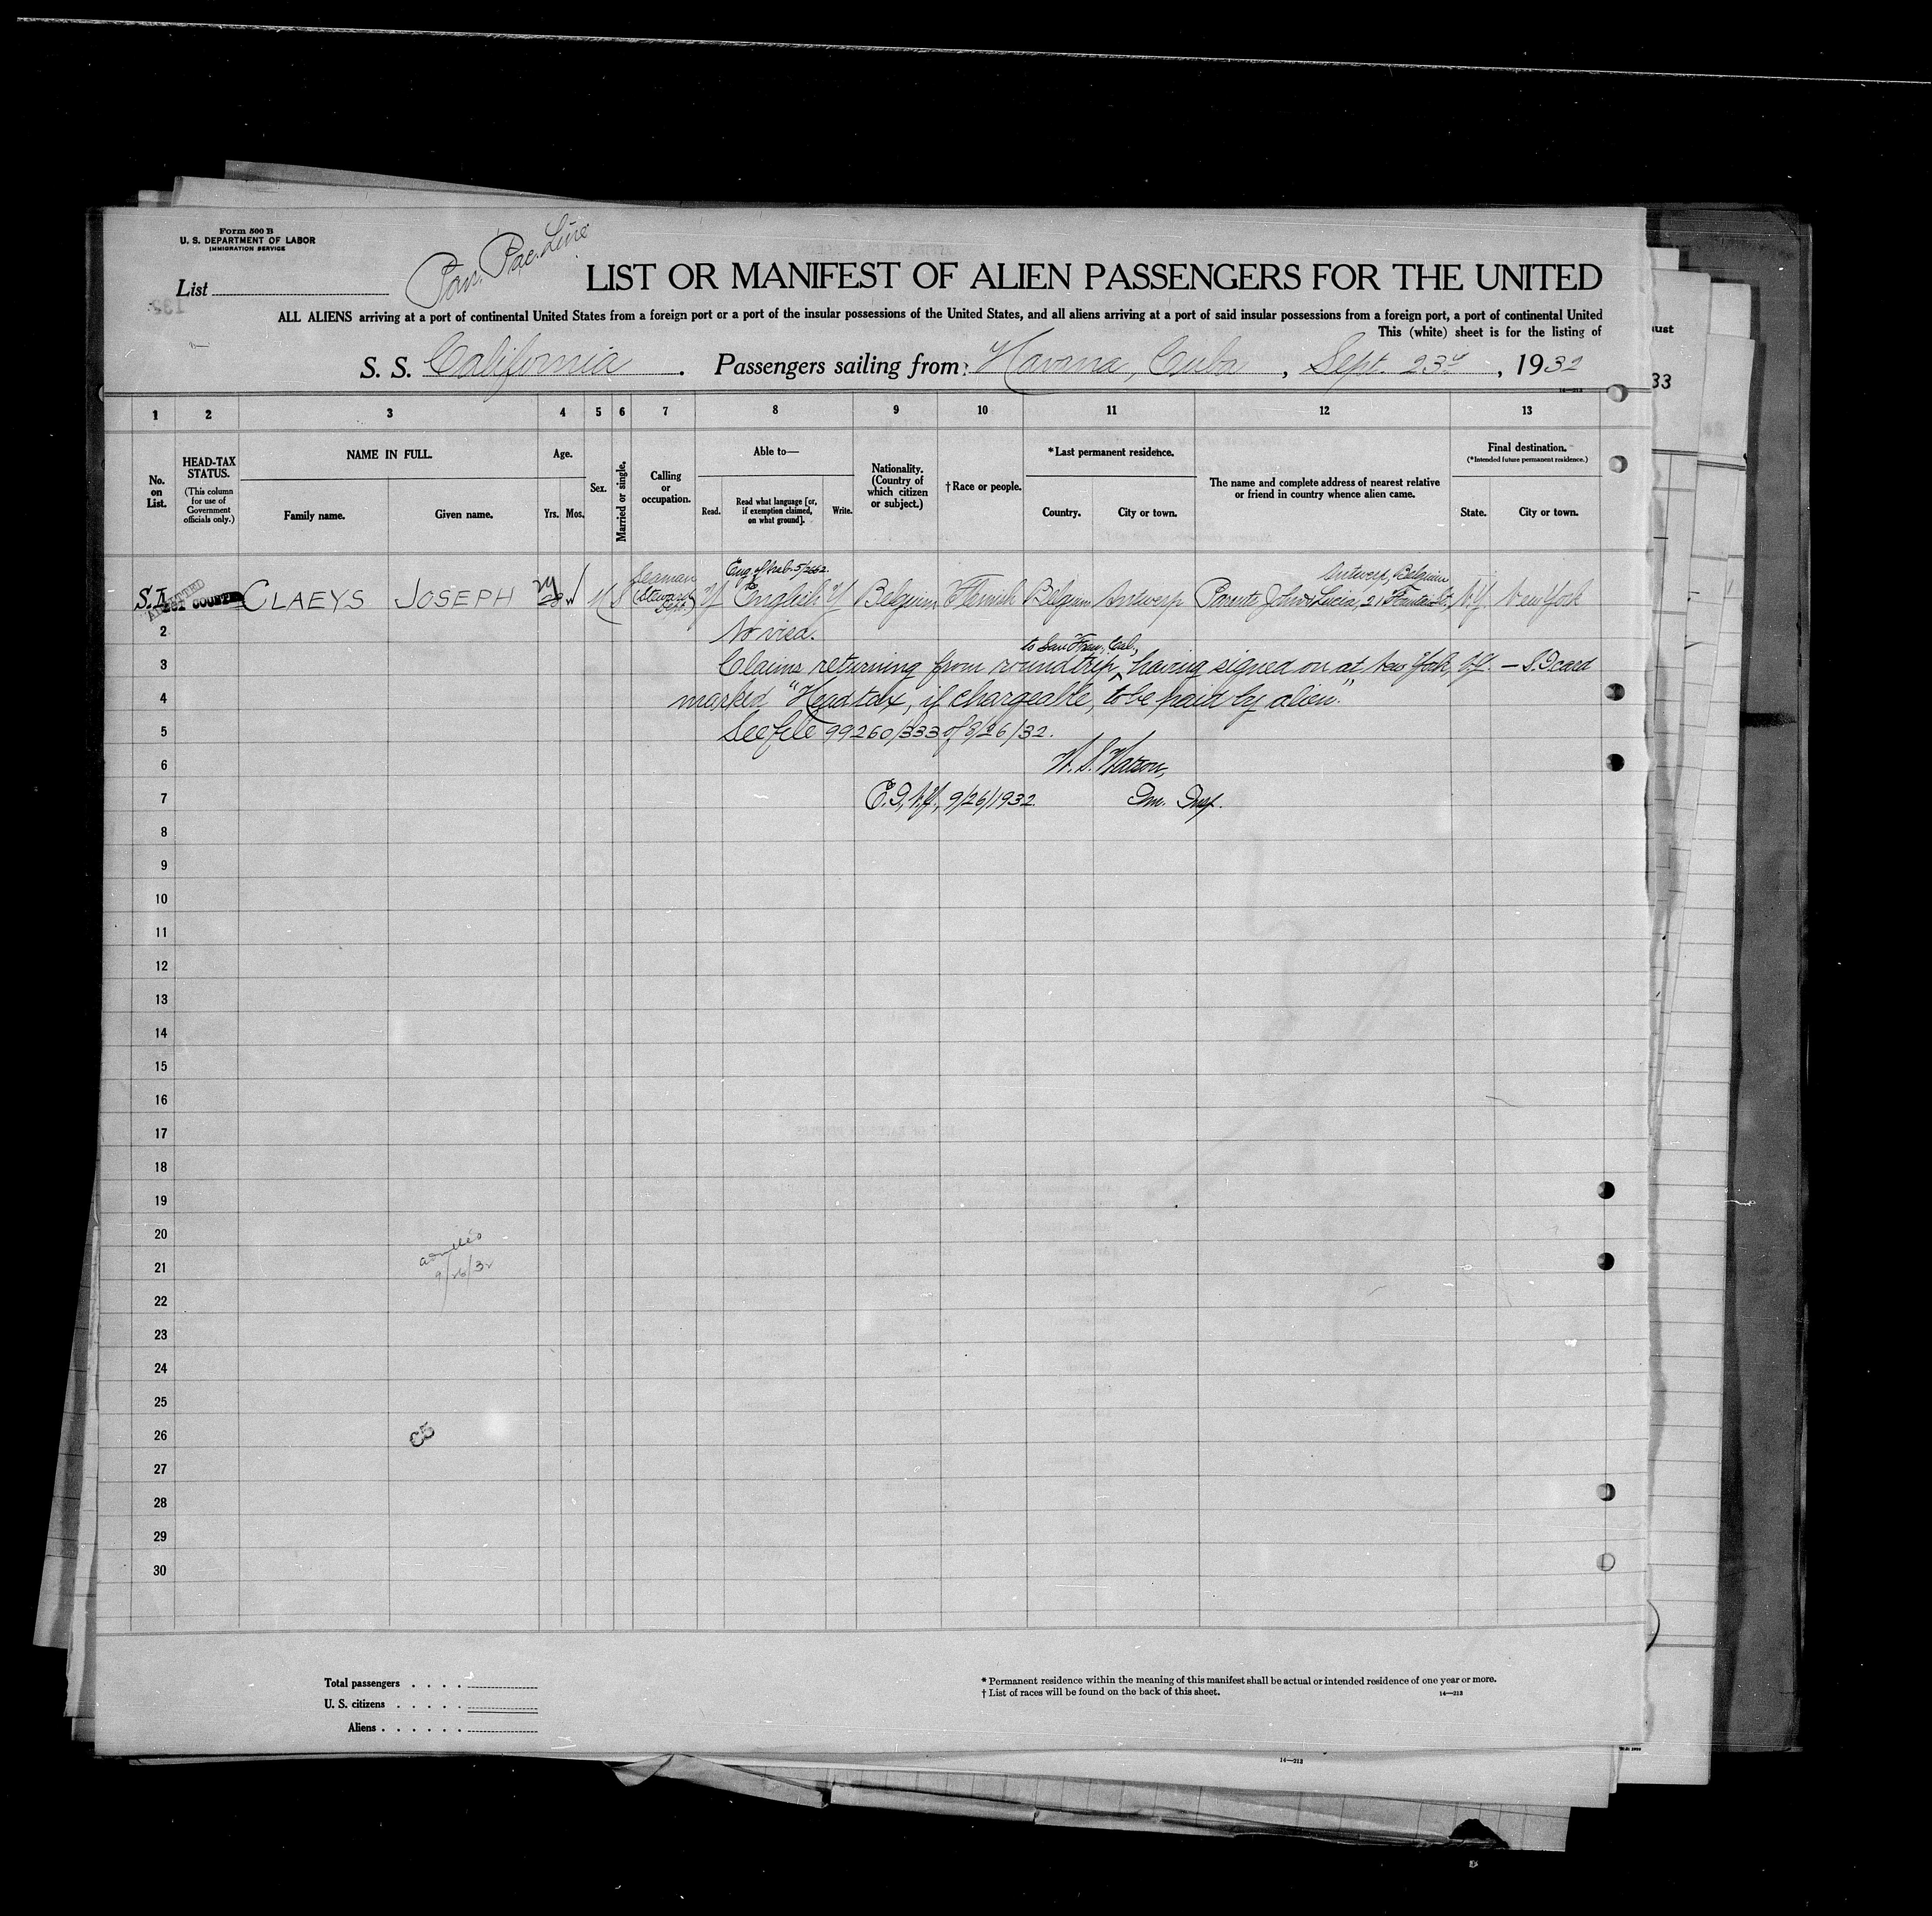 Form 500 B
U. S. DEPARTMENT OF LABOR
IMMIGRATION SERVICE
List
Pan. Pac. Line
LIST OR MANIFEST OF ALIEN PASSENGERS FOR THE UNITED
ALL ALIENS arriving at a port of continental United States from a foreign port or a port of the insular possessions of the United States, and all aliens arriving at a port of said insular possessions from a foreign port, a port of continental United
This (white) sheet is for the listing of
S. S. California. Passengers sailing from: Havana, Cuba, Sept. 23rd, 1932
14—213
1 2 3 4 5 6 7 8 9 10 11 12 13
No. on List.
HEAD-TAX STATUS.
(This column for use of Government officials only.)
NAME IN FULL.
Family name.
Given name.
Age.
Yrs. Mos.
Sex.
Married or single.
Calling or occupation.
Able to—
Read.
Read what language [or, if exemption claimed, on what ground].
Write.
Nationality. (Country of which citizen or subject.)
†Race or people.
*Last permanent residence.
Country.
City or town.
The name and complete address of nearest relative or friend in country whence alien came.
Final destination.
(*Intended future permanent residence.)
State.
City or town.
S.I. ADMITTED CLAEYS JOSEPH 28 M S Seaman (Steward Dept.) Y English Y Belgium Flemish Belgium Antwerp Parents John & Lucia, 21 St. Antwerp, Belgium N.Y. New York
2 No visa.
3 Claims returning from round trip to San Fran, Cal., having signed on at New York, N.Y. — S.I. card
4 marked "Head tax, if chargeable, to be paid by alien."
5 See file 99260/333 of 8/26/32.
6 W. S. Watson,
7 E.I., N.Y., 9/26/1932 Im. Insp.
8
9
10
11
12
13
14
15
16
17
18
19
20
21
admitted
9/26/32
22
23
24
25
26
27
28
29
30
Total passengers
U. S. citizens
Aliens
* Permanent residence within the meaning of this manifest shall be actual or intended residence of one year or more.
† List of races will be found on the back of this sheet.
14—213
14—213
33